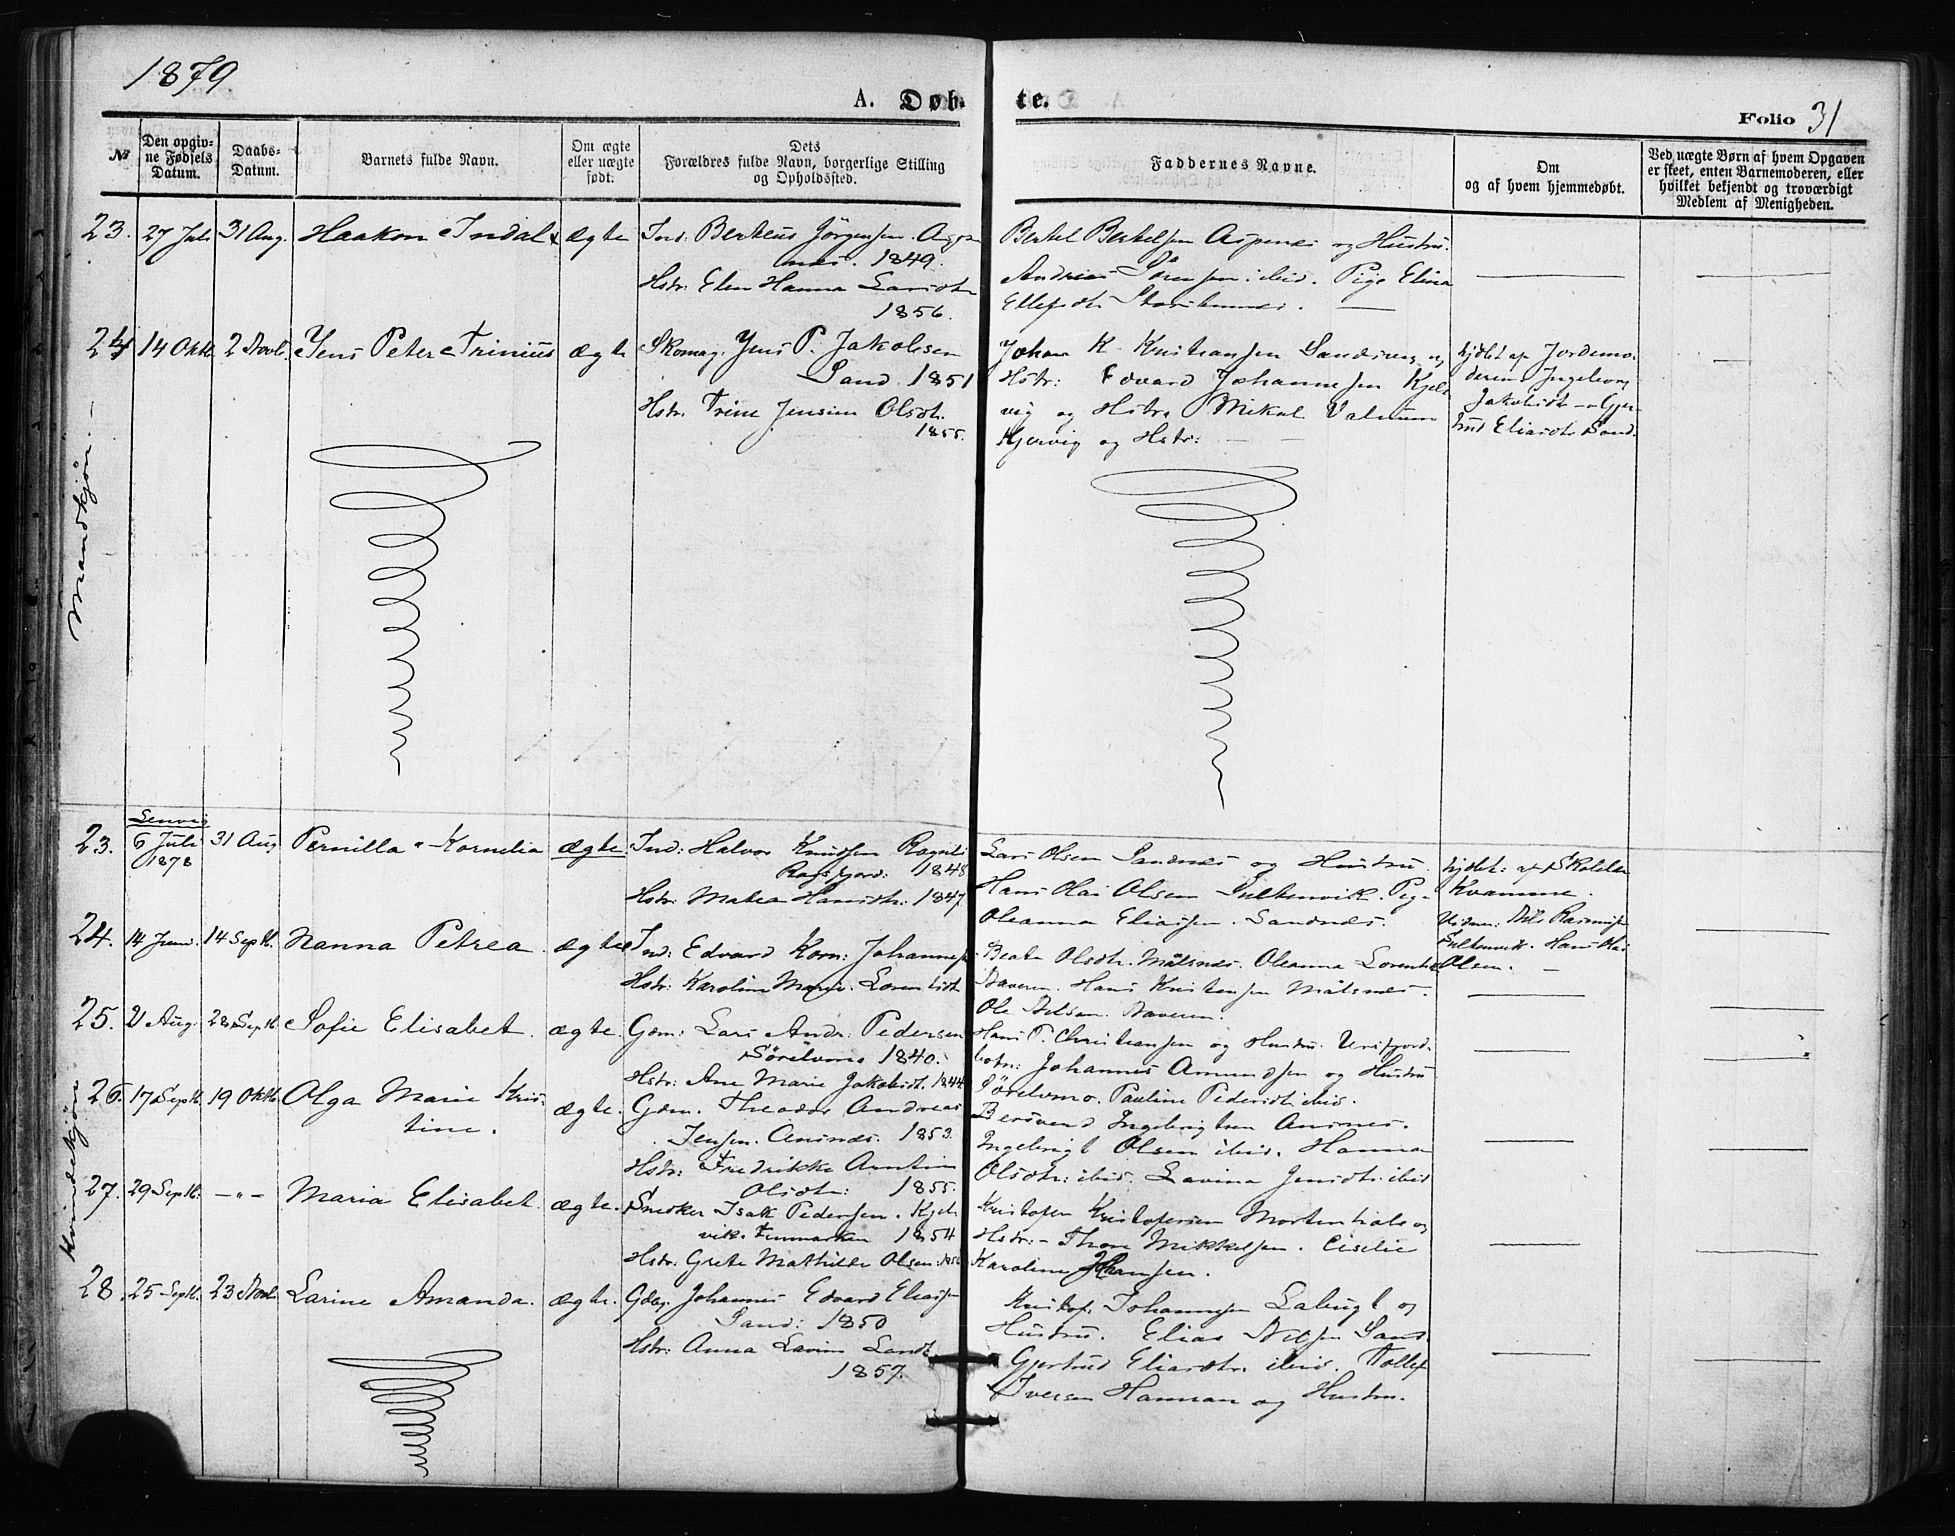 1879
A. Døbte.
Folio 31
№
Den opgivne Fødsels Datum.
Daabs-Datum.
Barnets fulde Navn.
Om ægte eller uægte født.
Dets Forældres fulde Navn, borgerlige Stilling og Opholdssted.
Faddernes Navne.
Om og af hvem hjemmedøbt.
Ved uægte Børn af hvem Opgaven er skeet, enten Barnemoderen, eller hvilket bekjendt og troværdigt Medlem af Menigheden.
Mandkjøn.
23. 27 Juli 31 Aug. Haakon Indal ægte Ind. Berteus Jørgensen
1849.
Hstr: Elen Hanna Larsdtr
1856.
Bertel Bertelsen Aspenes og Hustru.
Andreas Sørensen ibid. Pige Elina
Ellefsdtr
24 14 Oktb. 2 Novb. Jens Peter Trinius ægte Skomag. Jens P. Jakobsen
Sand. 1851
Hstr. Trine Jensine Olsdtr.
1855.
Johan K. Kristiansen og
Hstr: Edvard Johannesen Kjel-
vig og Hstr. Mikal Valnum
Kjervig og Hstr:
hjdøbt af Jordemo-
deren Ingeborg
Jakobsdtr og Gjer-
trud Eliasdtr Sand.
Kvindekjøn
Lenvig
23. 6 Juli 1878 31 Aug Pernilla Kornelia ægte Ind: Halvor Knudsen
1848
Hstr: Matea Hansdtr. 1847
Lars Olsen Sandnes og Hustru
Hans Olai Olsen Sultenvik. Pig-
Oleanna Eliassen. Sandnes.
hjdøbt: af
Kvamme.
Nils Rasmussen
Sultenvik. Hans Olai
Olsen.
24. 14 Juni. 14 Septb. Nanna Petrea. ægte Ind: Edvard Korn: Johannes
Hstr: Karoline Marie Lorentsdtr
Beate Olsdtr. Målsnes. Oleanna Lorents
Hans Kristensen Målsnes.
Ole Nilsen.
25. 2 Aug. 28 Septb. Sofie Elisabet. ægte. Gdm: Lars Andr. Pedersen
Sørelvmo 1840.
Hstr: Ane Marie Jakobsdtr. 1844
Hans P. Christiansen og Hustru.
botn: Johannes Amundsen og Hustru
Sørelvmo. Pauline Pedersdtr ibid.
26. 17 Septb. 19 Oktb. Olga Marie Kris-
tine. ægte. Gdm. Theodor Andreas
Jensen. Ansnes. 1853.
Hstr: Fredrikke Arntine
Olsdtr: 1855.
Ingebrigtsen Ansnes.
Ingebrigt Olsen ibid. Hanna
Olsdtr: ibid. Lavina Jensdtr. ibid
27. 29 Septb. —"— Maria Elisabet. ægte. Snedker Isak Pedersen. Kjel-
vik. Finmarken 1854
Hstr: Grete Mathilde Olsen:
Kristofer Kristofersen Mortenhals og
Hstr: Thore Mikkelsen. Ciselie
Karoline Johansen.
28. 25 Septb. 23 Novb. Larine Amanda. ægte. Johannes Edvard Eliassen
Sand: 1850
Hstr: Anna Lavine
1857.
Kristof. Johannesen Labugt og
Hustru. Elias Nilsen Sand.
Gjertrud Eliasdtr. ibid. Tollef
Iversen Hamran og Hustru.